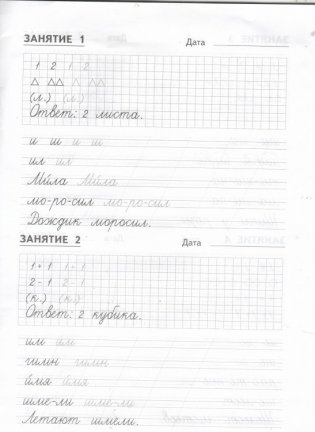 ЗАНЯТИЕ 1 Дата
1 2 1 2
(л.) (л.)
Ответ: 2 листа.
и ш и ш
ил ил
Мила Мила
мо-ро-сил мо-ро-сил
Дождик моросил.
ЗАНЯТИЕ 2 Дата
1+1 1+1
2-1 2-1
(к.) (к.)
Ответ: 2 кубика.
им им
гимн гимн
имя имя
шме-ли шме-ли
Летают шмели.